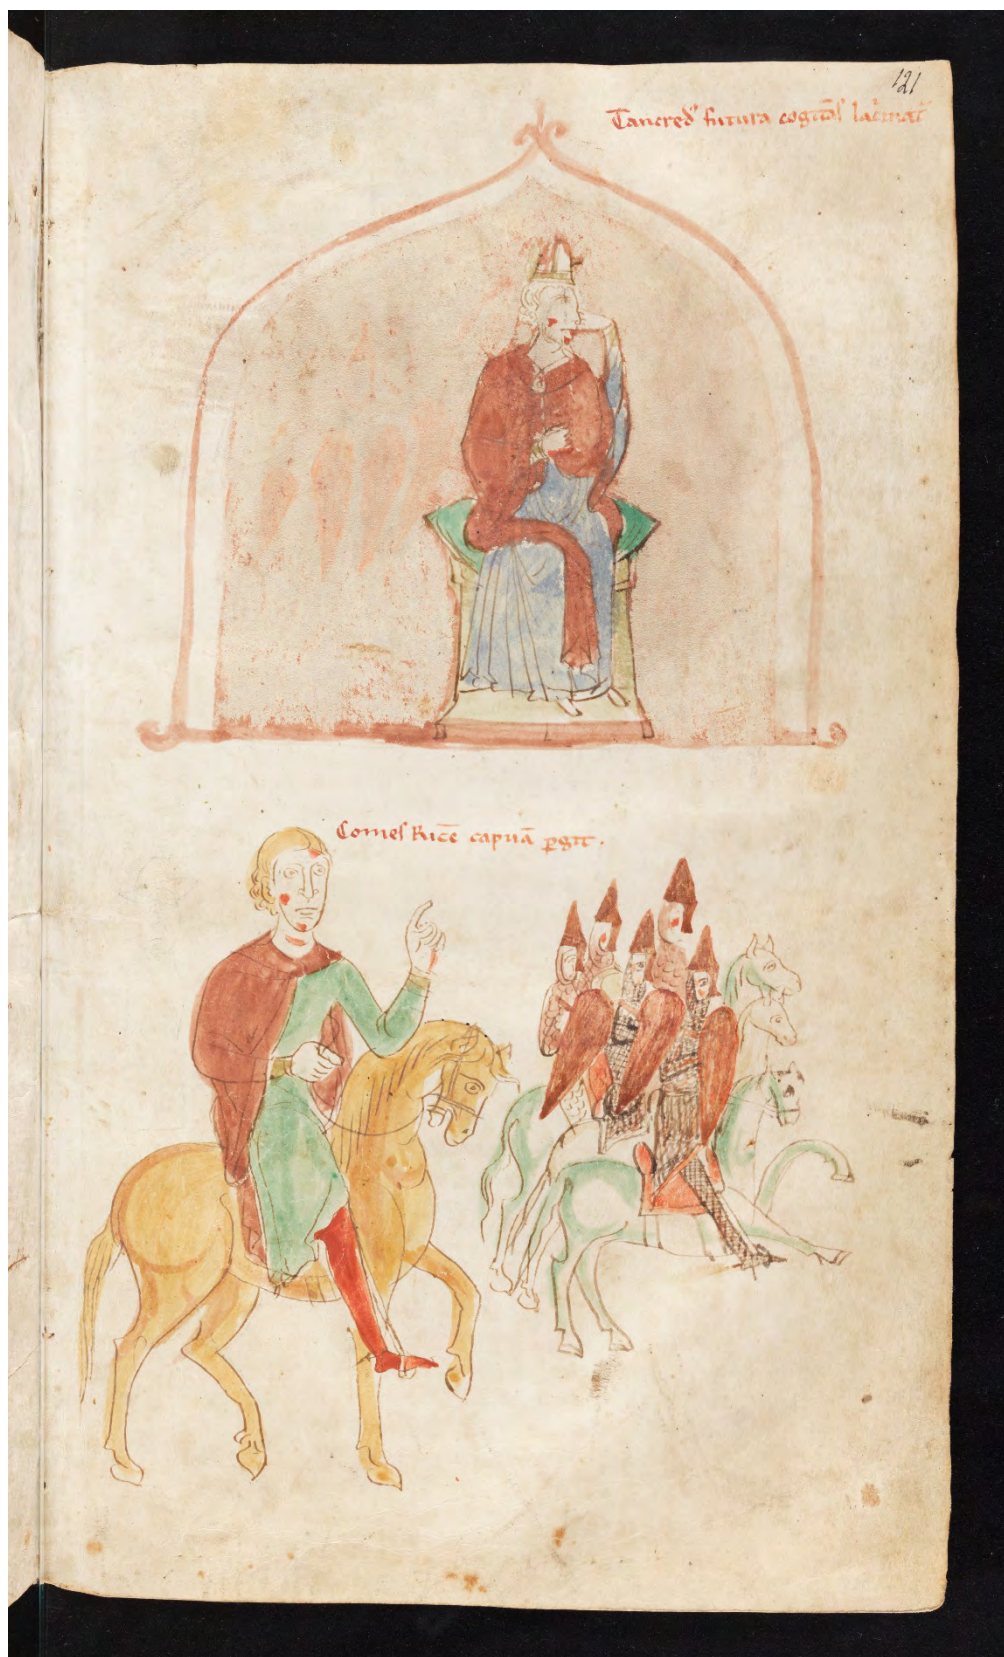 121
Tancred᾽ futura cogitās lac̄mat᾽
Comes Ricē capuā ꝑgit.